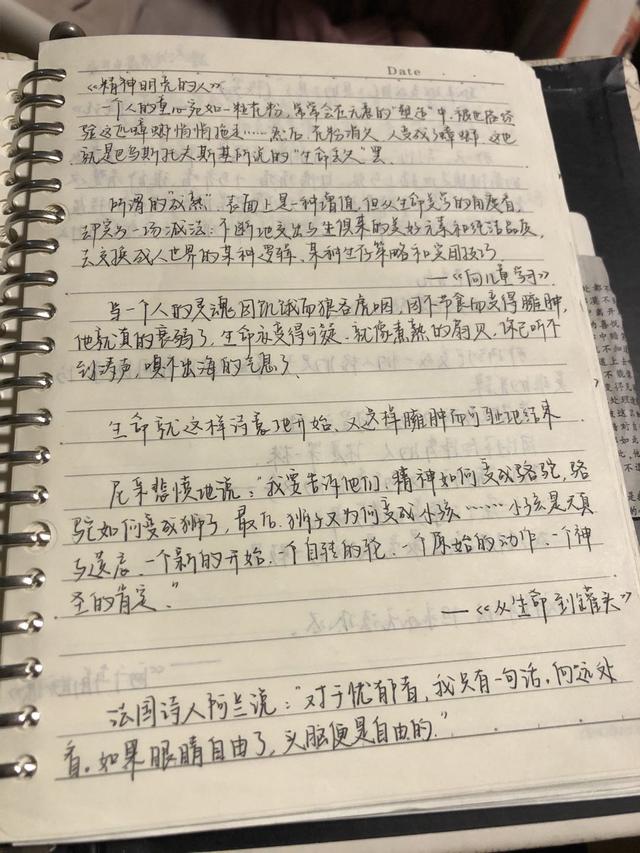 Date
《精神明亮的人》
一个人的童心宛如一粒花粉，常常会在无意的“塑造”中，被世俗经
验这匹蟑螂悄悄拖走……然后，花粉消失，人变成了蟑螂。这也
就是巴乌斯托夫斯基所说的“生命丢失”罢
所谓的“成熟”，表面上是一种增值，但从生命美学的角度看，
却实为一场减法：不断地交出与生俱来的美好元素和纯洁品质，
去交换成人世界的某种逻辑、某种生存策略和实用技巧
——《向儿童学习》
当一个人的灵魂因饥饿而狼吞虎咽，因不节食而变得臃肿，
他就真的衰弱了，生命亦变得可疑、就像煮熟的扇贝，你已听不
到涛声，嗅不出海的气息了
生命就这样诗意地开始、又这样臃肿而可耻地结束
尼采悲愤地说：“我要告诉他们，精神如何变成骆驼，骆
驼如何变成狮子，最后，狮子又为何变成小孩……小孩是天真
与遗忘、一个新的开始、一个自转的轮、一个原始的动作、一个神
圣的肯定。”
——《从生命到罐头》
法国诗人阿兰说：“对于忧郁者，我只有一句话，向远处
看。如果眼睛自由了，头脑便是自由的。”